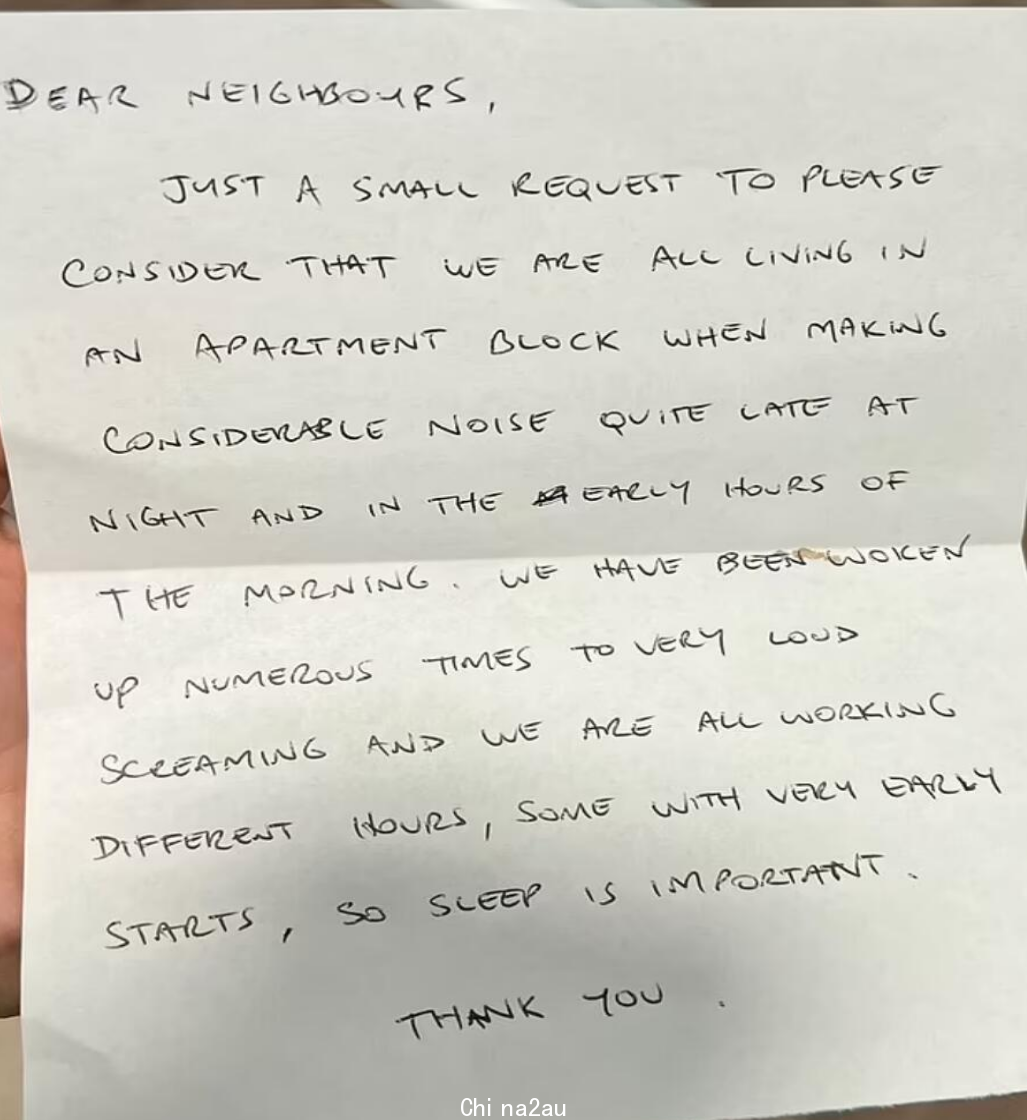 DEAR NEIGHBOURS,
JUST A SMALL REQUEST TO PLEASE
CONSIDER THAT WE ARE ALL LIVING IN
AN APARTMENT BLOCK WHEN MAKING
CONSIDERABLE NOISE QUITE LATE AT
NIGHT AND IN THE EARLY HOURS OF
THE MORNING. WE HAVE BEEN WOKEN
UP NUMEROUS TIMES TO VERY LOUD
SCREAMING AND WE ARE ALL WORKING
DIFFERENT HOURS, SOME WITH VERY EARLY
STARTS, SO SLEEP IS IMPORTANT.
THANK YOU.
Chi na2au